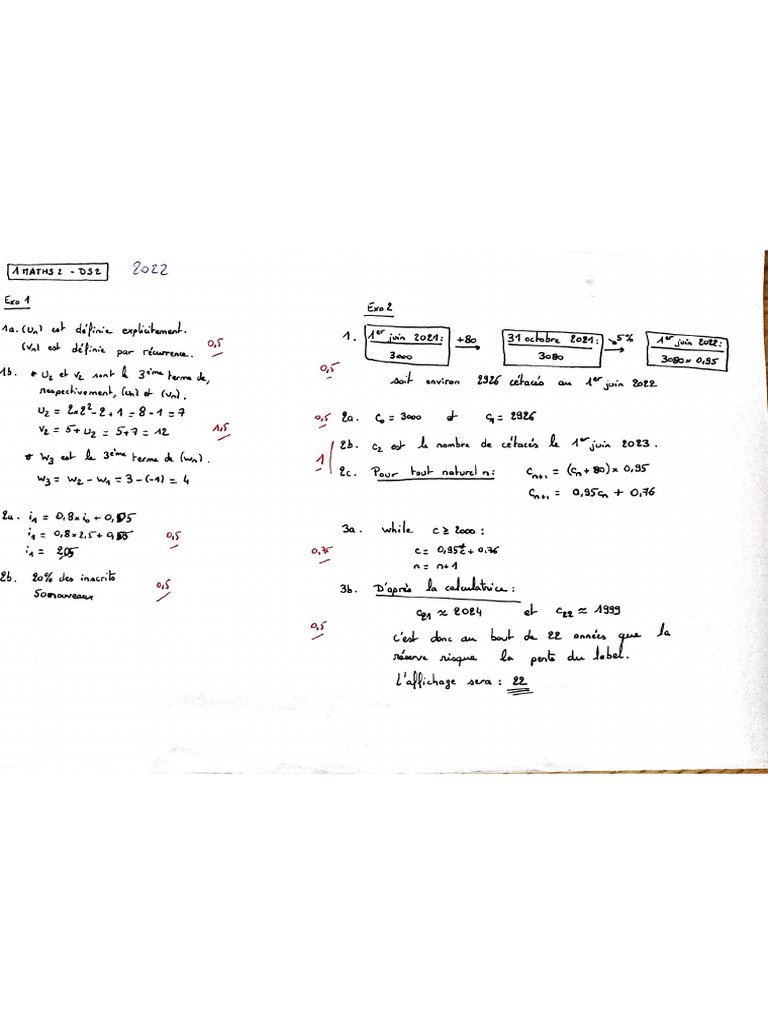 1 MATHS 2 - DS2 2022
Exo 1
1a. (un) est définie explicitement.
(vn) est définie par récurrence. 0,5
1b. * u2 et v2 sont le 3ième terme de,
respectivement, (un) et (vn).
u2 = 2×2² - 2 + 1 = 8 - 1 = 7
v2 = 5 + u2 = 5 + 7 = 12 1,5
* w3 est le 3ième terme de (wn).
w3 = w2 - w1 = 3 - (-1) = 4
2a. i1 = 0,8 × i0 + 0,05
i1 = 0,8 × 2,5 + 0,05 0,5
i1 = 2,05
2b. 20% des inscrits
50 nouveaux 0,5
Exo 2
1. 1er juin 2021: 3000 +80 31 octobre 2021: 3080 5% 1er juin 2022: 3080 × 0,95
0,5
soit environ 2926 cétacés au 1er juin 2022
0,5 2a. c0 = 3000 et c1 = 2926
2b. c2 est le nombre de cétacés le 1er juin 2023.
1 2c. Pour tout naturel n: cn+1 = (cn + 80) × 0,95
cn+1 = 0,95cn + 0,76
3a. while c ≥ 2000 :
0,75 c = 0,95c + 0,76
n = n+1
3b. D'après la calculatrice :
c21 ≈ 2024 et c22 ≈ 1999
0,5 c'est donc au bout de 22 années que la
réserve risque la perte du label.
L'affichage sera : 22